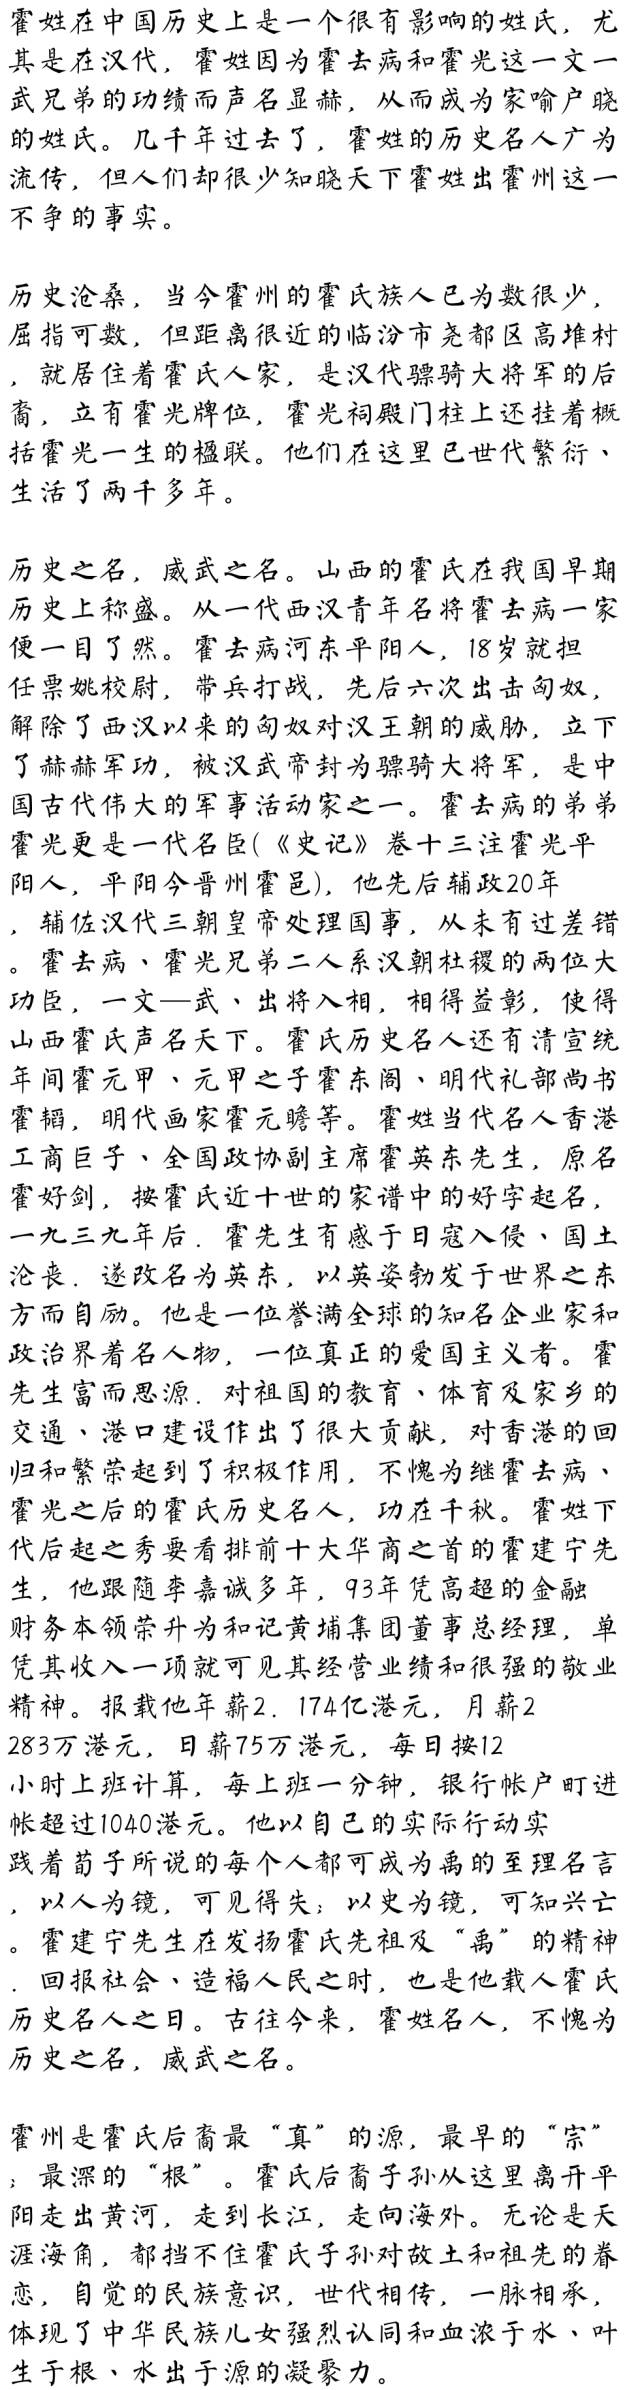 霍姓在中国历史上是一个很有影响的姓氏，尤
其是在汉代，霍姓因为霍去病和霍光这一文一
武兄弟的功绩而声名显赫，从而成为家喻户晓
的姓氏。几千年过去了，霍姓的历史名人广为
流传，但人们却很少知晓天下霍姓出霍州这一
不争的事实。
历史沧桑，当今霍州的霍氏族人已为数很少，
屈指可数，但距离很近的临汾市尧都区高堆村
，就居住着霍氏人家，是汉代骠骑大将军的后
裔，立有霍光牌位，霍光祠殿门柱上还挂着概
括霍光一生的楹联。他们在这里已世代繁衍、
生活了两千多年。
历史之名，威武之名。山西的霍氏在我国早期
历史上称盛。从一代西汉青年名将霍去病一家
便一目了然。霍去病河东平阳人，18岁就担
任票姚校尉，带兵打战，先后六次出击匈奴，
解除了西汉以来的匈奴对汉王朝的威胁，立下
了赫赫军功，被汉武帝封为骠骑大将军，是中
国古代伟大的军事活动家之一。霍去病的弟弟
霍光更是一代名臣(《史记》卷十三注霍光平
阳人，平阳今晋州霍邑)，他先后辅政20年
，辅佐汉代三朝皇帝处理国事，从未有过差错
。霍去病、霍光兄弟二人系汉朝杜稷的两位大
功臣，一文—武、出将入相，相得益彰，使得
山西霍氏声名天下。霍氏历史名人还有清宣统
年间霍元甲、元甲之子霍东阁、明代礼部尚书
霍韬，明代画家霍元瞻等。霍姓当代名人香港
工商巨子、全国政协副主席霍英东先生，原名
霍好剑，按霍氏近十世的家谱中的好字起名，
一九三九年后．霍先生有感于日寇入侵、国土
沦丧．遂改名为英东，以英姿勃发于世界之东
方而自励。他是一位誉满全球的知名企业家和
政治界着名人物，一位真正的爱国主义者。霍
先生富而思源．对祖国的教育、体育及家乡的
交通、港口建设作出了很大贡献，对香港的回
归和繁荣起到了积极作用，不愧为继霍去病、
霍光之后的霍氏历史名人，功在千秋。霍姓下
代后起之秀要看排前十大华商之首的霍建宁先
生，他跟随李嘉诚多年，93年凭高超的金融
财务本领荣升为和记黄埔集团董事总经理，单
凭其收入一项就可见其经营业绩和很强的敬业
精神。报载他年薪2．174亿港元，月薪2
283万港元，日薪75万港元，每日按12
小时上班计算，每上班一分钟，银行帐户町进
帐超过1040港元。他以自己的实际行动实
践着荀子所说的每个人都可成为禹的至理名言
，以人为镜，可见得失；以史为镜，可知兴亡
。霍建宁先生在发扬霍氏先祖及“禹”的精神
．回报社会、造福人民之时，也是他载人霍氏
历史名人之日。古往今来，霍姓名人，不愧为
历史之名，威武之名。
霍州是霍氏后裔最“真”的源，最早的“宗”
；最深的“根”。霍氏后裔子孙从这里离开平
阳走出黄河，走到长江，走向海外。无论是天
涯海角，都挡不住霍氏子孙对故土和祖先的眷
恋，自觉的民族意识，世代相传，一脉相承，
体现了中华民族儿女强烈认同和血浓于水、叶
生于根、水出于源的凝聚力。